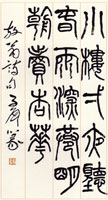 小樓一夜聽
春雨深巷明
朝賣杏花
放翁詩句